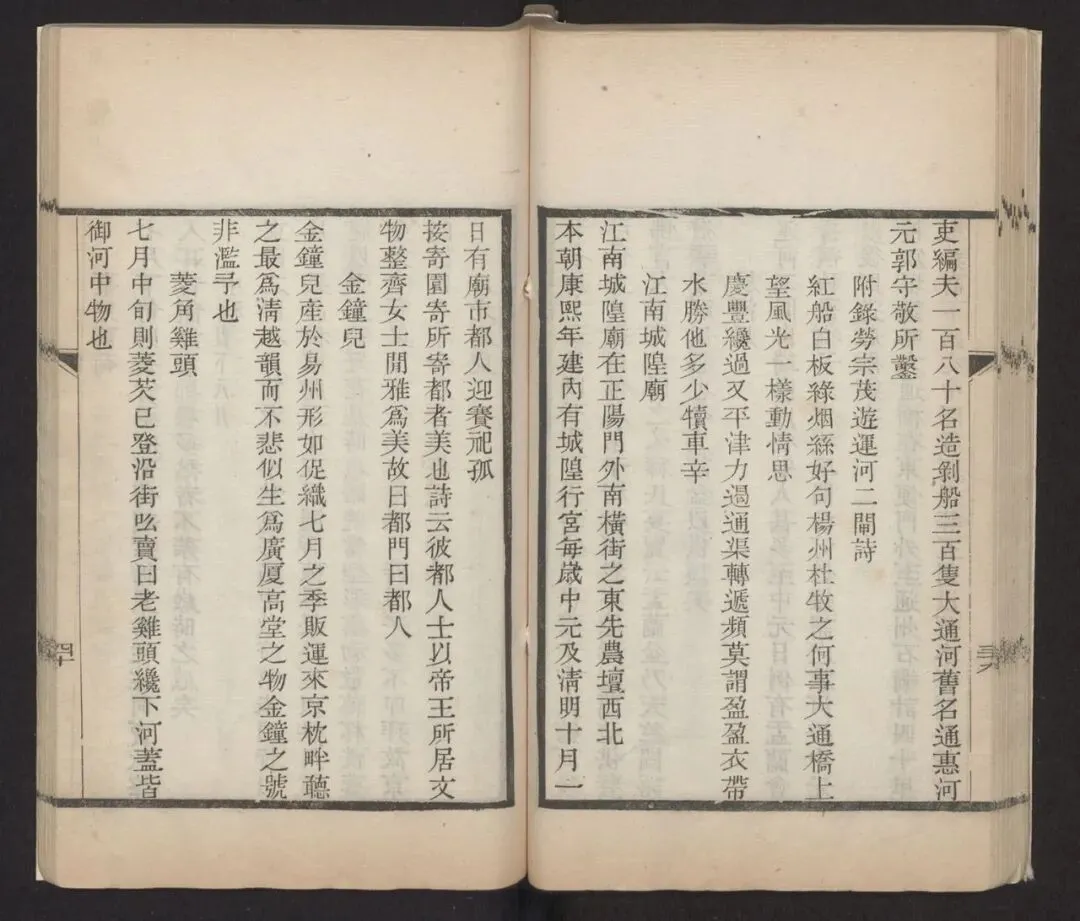 吏編夫一百八十名造剝船三百隻大通河舊名通惠河
元郭守敬所鑿
附錄勞宗茂遊運河二閘詩
紅船白板綠烟絲好句楊州杜牧之何事大通橋上
望風光一樣動情思
慶豐纔過又平津力遏通渠轉遞頻莫謂盈盈衣帶
水勝他多少犢車辛
江南城隍廟
江南城隍廟在正陽門外南橫街之東先農壇西北
本朝康熙年建內有城隍行宮每歲中元及清明十月一
日有廟市都人迎賽祀孤
按寄園寄所寄都者美也詩云彼都人士以帝王所居文
物整齊女士閒雅爲美故曰都門曰都人
金鐘兒
金鐘兒產於易州形如促織七月之季販運來京枕畔聽
之最爲清越韻而不悲似生爲廣厦高堂之物金鐘之號
非濫予也
菱角雞頭
七月中旬則菱芡已登沿街吆賣曰老雞頭纔下河蓋皆
御河中物也